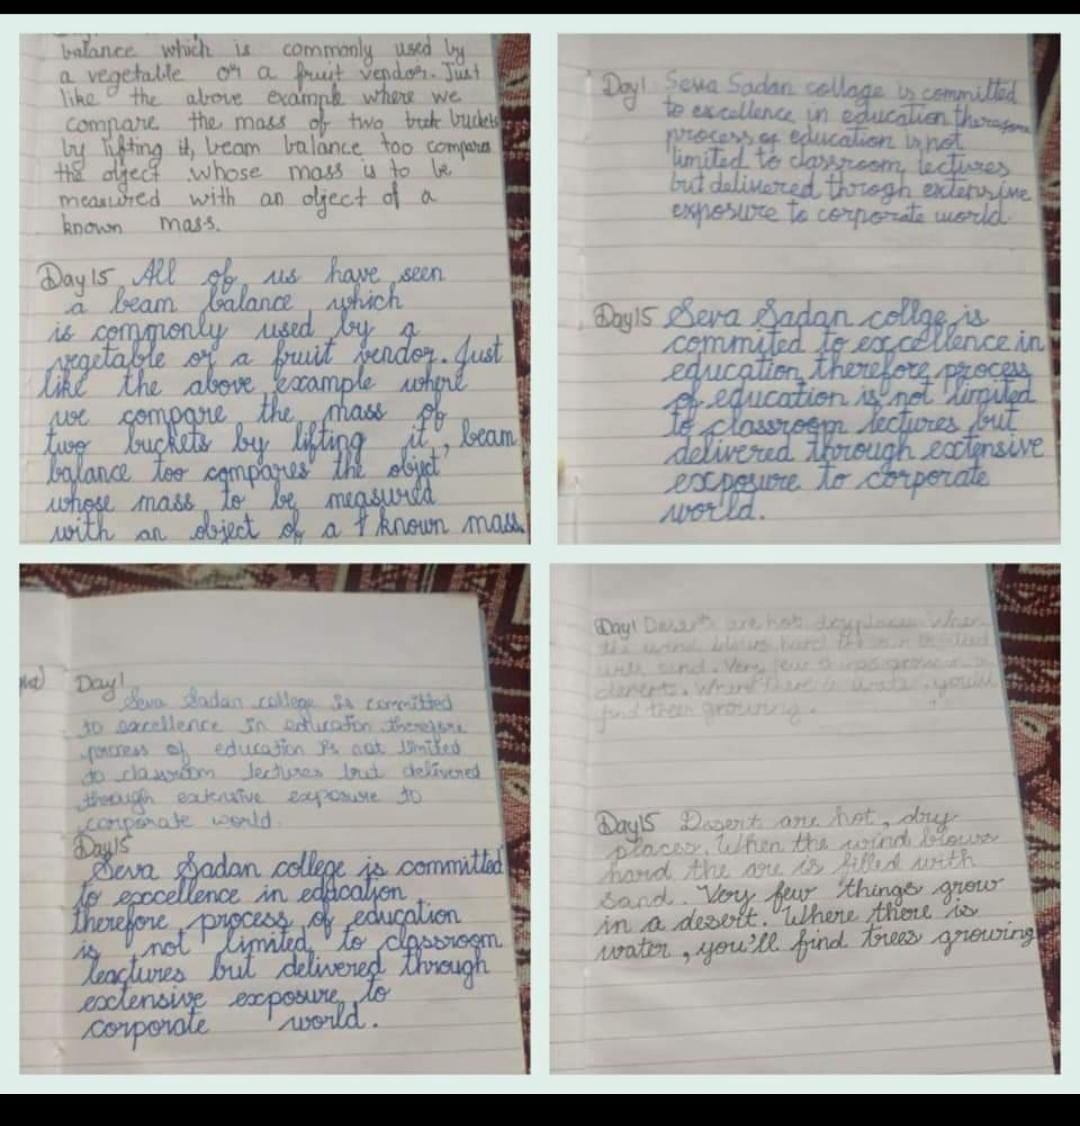 balance which is commonly used by
a vegetable or a fruit vendor. Just
like the above example where we
compare the mass of two buckets
by lifting it, beam balance too compares
the object whose mass is to be
measured with an object of a
known mass.
Day 15 All of us have seen
a beam balance which
is commonly used by a
vegetable or a fruit vendor. Just
like the above example where
we compare the mass of
two buckets by lifting it, beam
balance too compares the object
whose mass to be measured
with an object of a known mass
Day 1 Seva Sadan collage is committed
to excellence in education therefore
process of education is not
limited to classroom lectures
but delivered throgh extensive
exposure to corporate world.
Day 15 Seva Sadan collge is
commited to excellence in
education therefore process
of education is not limited
to classroom lectures but
delivered through extensive
exposure to corporate
world.
Day 1
Seva Sadan college is committed
to excellence in education therefore
process of education is not limited
to classroom lectures but delivered
through extensive exposure to
corporate world.
Day 15
Seva Sadan college is committed
to excellence in edacation
therefore process of education
is not limited to classroom
leactures but delivered through
extensive exposure to
corporate world.
Day 1 Deserts are hot dry places When
the wind blows hard the
with sand. Very few things grow in a
deserts. Where there is water, you'll
find trees growing.
Day 15 Desert are hot, dry
places. When the wind blows
hard the are is filled with
sand. Very few things grow
in a desert. Where there is
water, you'll find trees growing